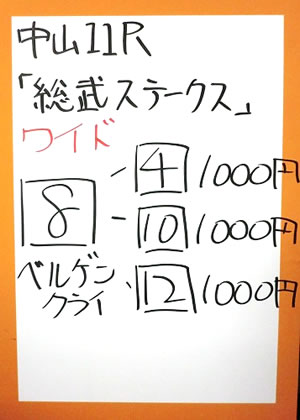 中山11R
「総武ステークス」
ワイド
8
ベルゲン
クライ
4 1000円
10 1000円
12 1000円